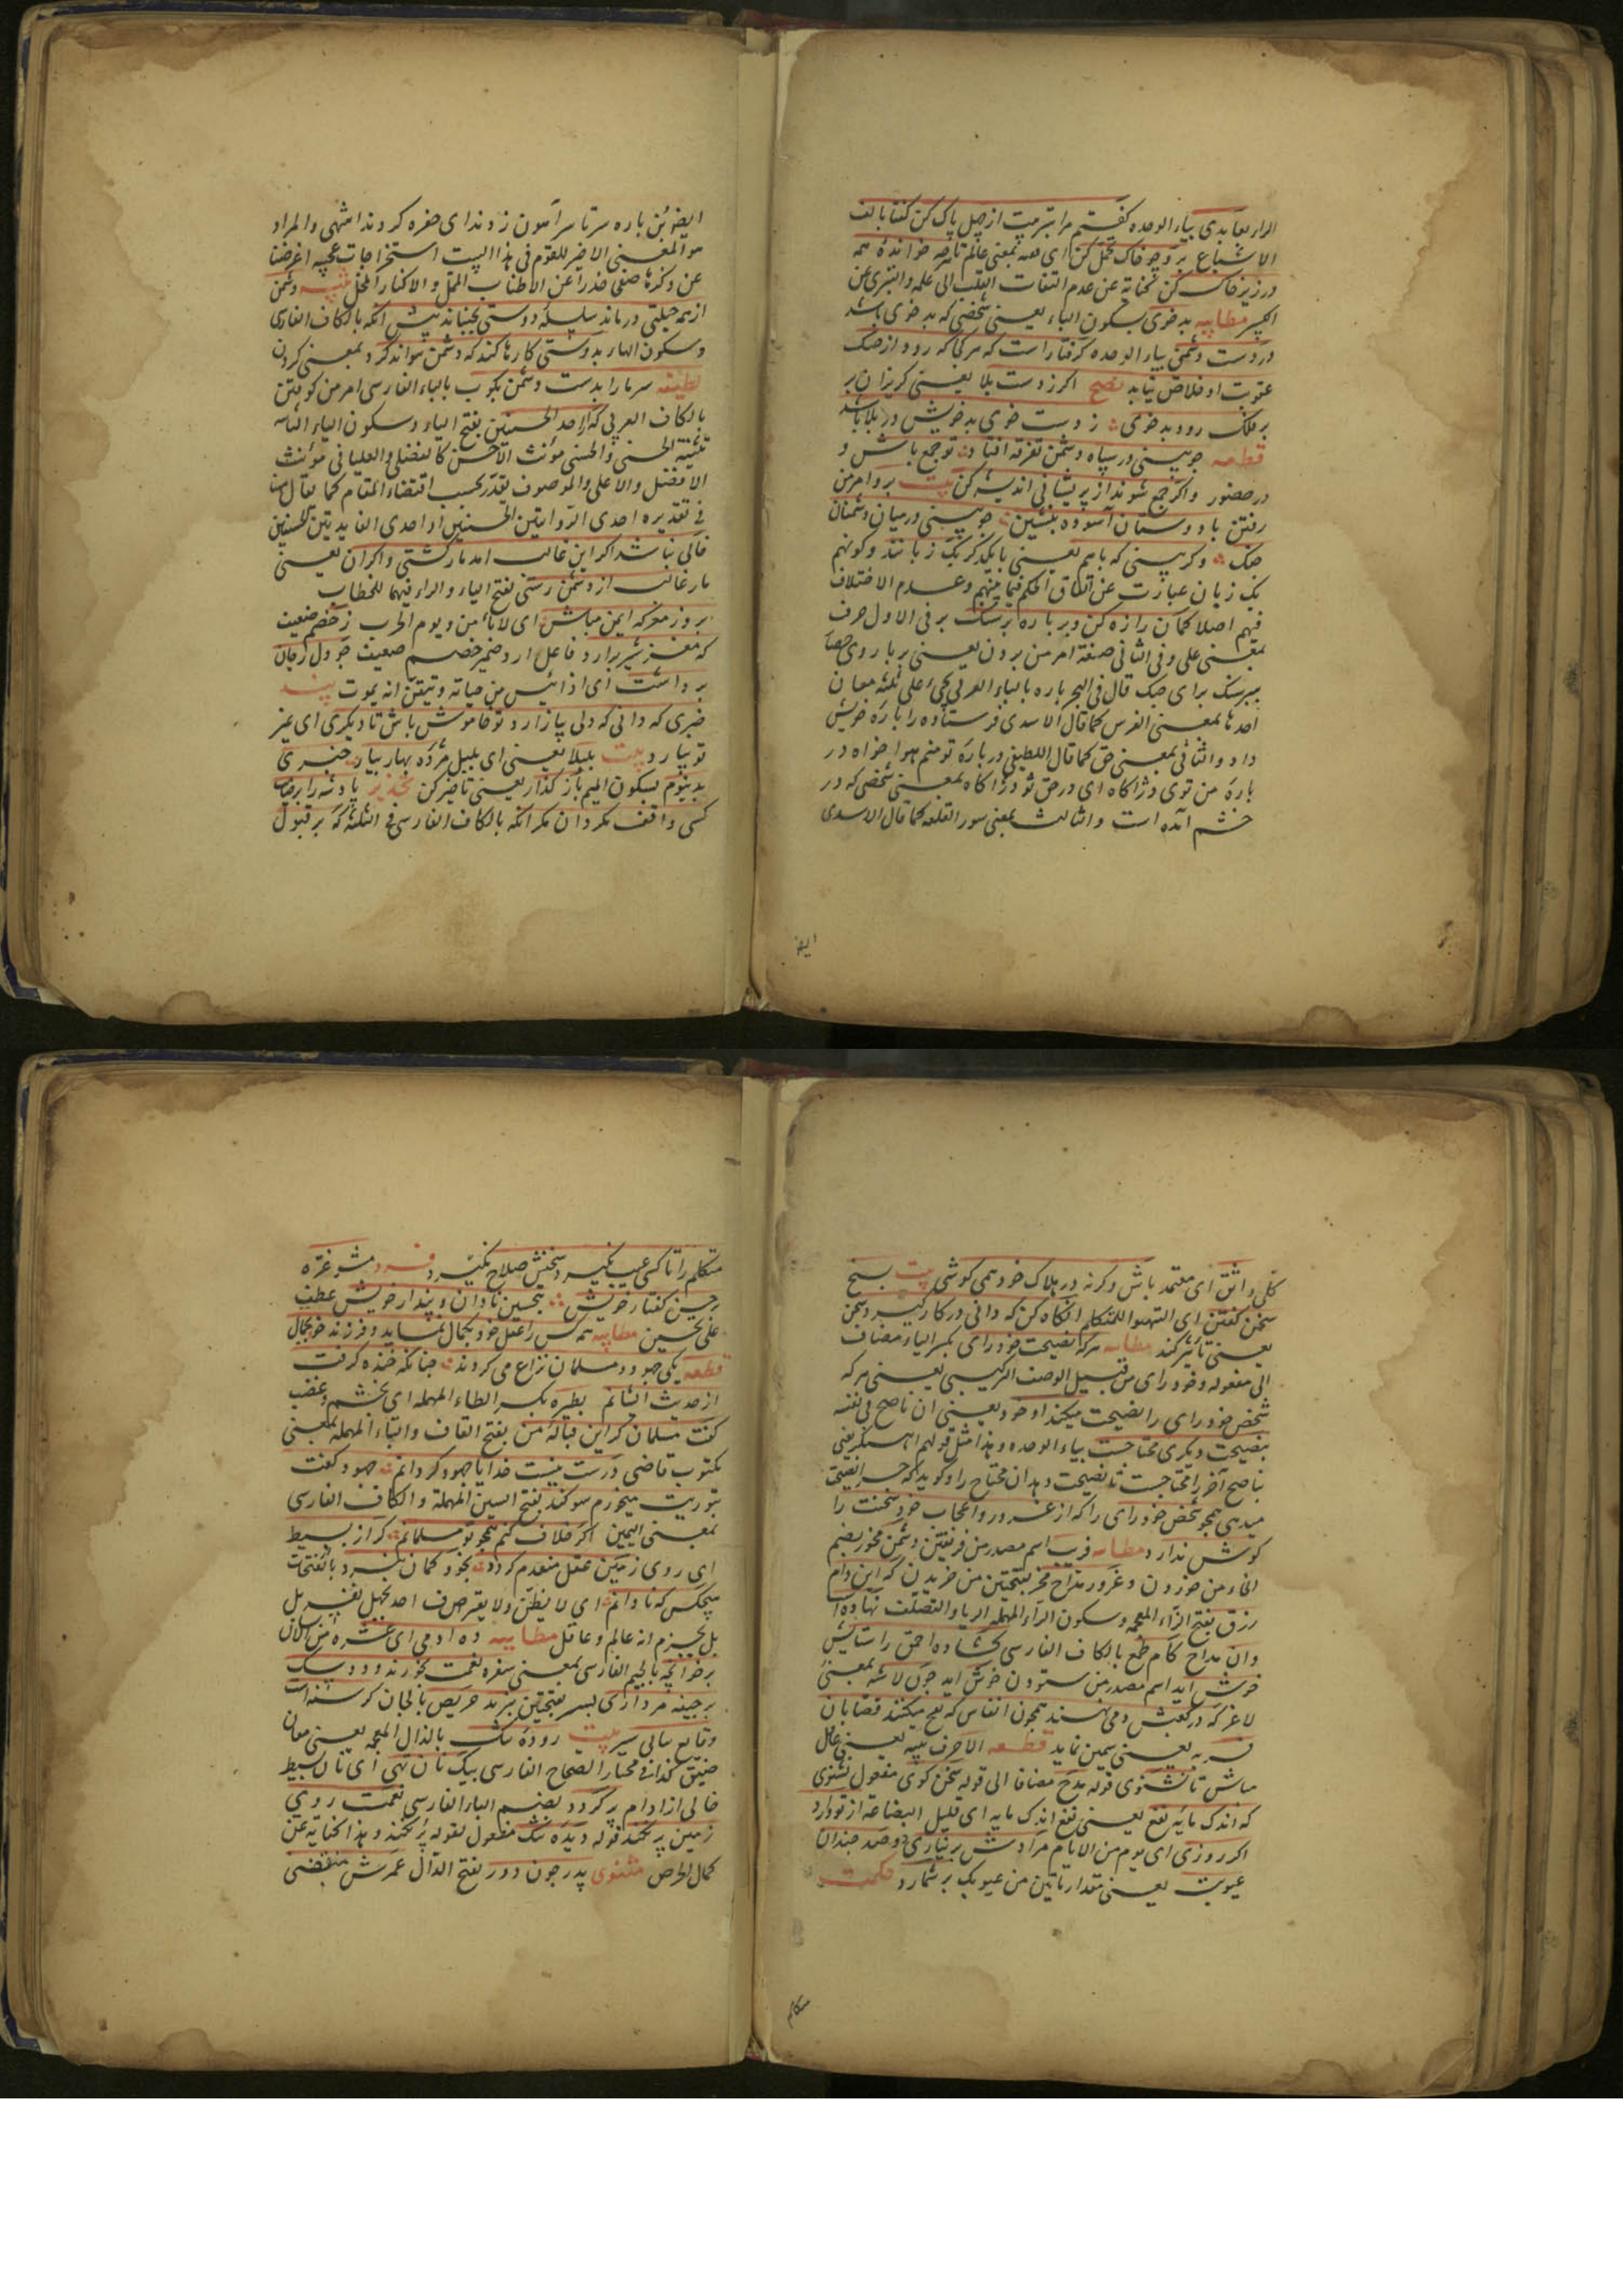 الرار بعابدی بیاء الوحده کفتم مرا بتربیت از جهل پاک کن کفتا بالف
الاشباع برو چو خاک تحمل کن ای فقیه بمعنی عالم تا هرچه خوانده همه
در زیر خاک کن کنایة عن عدم التفات القلب الی علمه والتبری عن
الکبر مطایبه بدخوی بسکون الباء یعنی شخصی که بدخوی باشد
در دست دشمنی بیاء الوحده کرفتار است که هر کجا که رود از چنک
عقوبت او خلاص نیابد نصح اکر ز دست بلا یعنی کریزان بر
بر فلک رود بدخوی ز دست خوی بد خویش در بلا باشد
قطعه چو بینی در سپاه دشمن تفرقه افتاده تو جمع باش و
در حضور واکر جمع شوند از پریشانی اندیشه کن بیت برو امر من
رفتن با دوستان آسوده بنشین چو بینی در میان دشمنان
جنک وکر بینی که باهم یعنی با یکدیکر یک زبانند وکونهم
یک زبان عبارت عن اتفاق الحکم فیما بینهم وعدم الاختلاف
فیهم اصلا کمان را زه کن وبر باره بر سنک بر فی الاول حرف
بمعنی علی وفی الثانی صیغة امر من بردن یعنی بر باروی حصار
ببر سنک برای جنک قال فی البحر باره بالباء العربی یجئ علی ثلثه معان
احدها بمعنی الفرس کما قال الاسدی فرستاده را باره خویش
داد والثانی بمعنی حق کما قال اللطیفی در باره تو منم هوا خواه در
باره من توی دژاکاه ای در حق تو ودژاکاه بمعنی شخصی که در
خشم آمده است والثالث بمعنی سور القلعه کما قال الاسدی
ایضا
ایضا بن باره سرتاسر آهون زدند ای حفره کردند انتهی والمراد
هو المعنی الاخیر للقوم فی هذا البیت استخراجات عجیبه اعرضنا
عن ذکرها صفحا حذرا عن الاطناب الممل والاکثار المخل تنبیه دشمن
از همه حیلتی درماند سلسله دوستی بجنباند پیش آنکه بالکاف الفارسی
وسکون الهاء بدوستی کارها کند که دشمن نتواند کرد بمعنی کردن
لطیفه سر مار را بدست دشمن بکوب بالباء الفارسی امر من کوفتن
بالکاف العربی که از احد الحسنیین بفتح الیاء وسکون الیاء الثانیه
تثنیة الحسنی والحسنی مؤنث الاحسن کالفضلی والعلیا فی مؤنث
الافضل والاعلی والموصوف یقدر بحسب اقتضاء المقام کما یقال
فی تقدیره احدی الروایتین الحسنیین او احدی الفایدتین الحسنیین
خالی نباشد اکر این غالب امد مار کشتی واکر ان یعنی
مار غالب از دشمن رستی بفتح الیاء والراء فیهما للخطاب
بروز معرکه ایمن مباش ای لا تأمن ویوم الحرب ز خصم ضعیف
که مغز شیر برارد فاعل ارد ضمیر خصم ضعیف چو دل ز جان
برداشت ای اذا ایس من حیاته وتیقن انه یموت پند
خبری که دانی که دلی بیازارد تو خاموش باش تا دیکری ای غیر
تو بیارد بیت بلبلا یعنی ای بلبل مژده بهار بیار خبری
بد ببوم بسکون المیم باز کذار یعنی تاخیر کن تحذیر پادشه را بر خیانت
کسی واقف مکردان مکر آنکه بالکاف الفارسی فی الثلثه که بر قبول
کلی واثق ای معتمد باش وکرنه در هلاک خود همی کوشی بیت بسیج
سخن کفتن ای التهیؤ للتکلم انکاه کن که دانی در کار کیرد سخن
یعنی تأثیر کند مطایبه هرکه نصیحت خود رای بکسر الیاء مضاف
الی مفعوله وخود رای من قبیل الوصف الترکیبی یعنی هرکه
شخص خود رای را نصیحت میکند او خود یعنی ان ناصح فی نفسه
بنصیحت دیکری محتاجست بیاء الوحده وهذا مثل قولهم
ناصح آخر را محتاجست تا نصیحت دهد ان محتاج را وکوید که چرا نصیحت
میدهی همچو شخص خود رای را که از غرور واعجاب خود سخنت را
کوش ندارد مطایبه فریب اسم مصدر من فریفتن دشمن مخور بضم
الخاء من خوردن وغرور مداح مخر بفتحتین من خریدن که این دام
زرق بفتح الزاء المعجمه وسکون الراء المهمله الریا والتصلف نهاده
وان مداح کام طمع بالکاف الفارسی کشاده احمق را ستایش
خوش اید اسم مصدر من ستودن خوش اید چون لاشه بمعنی
لاغر که در کعبش دمی بهسند همچون انفاس که نفخ میکنند قصابان
فربه یعنی سمین نماید قطعه الا حرف تنبیه یعنی غافل
مباش تا نشنوی قوله مدح مضافا الی قوله سخن کوی مفعول نشنوی
که اندک مایه نفع یعنی نفع اندک مایه ای قلیل البضاعه از تو دارد
اکر روزی ای یوم من الایام مرادش بر نیاری دوصد چندان
عیوبت یعنی مقدار مأتین من عیوبک بر شمارد حکمت
متکلم
متکلم را تا کسی عیب نکیرد سخنش صلاح نکیرد فرد مشو غره
بر حسن کفتار خویش بتحسین نادان وپندار خویش عطف
علی تحسین مطایبه همه کس را عقل خود بکمال نماید وفرزند خود بجمال
قطعه یکی جهود ومسلمان نزاع می کردند چنانکه خنده کرفت
از حدیث ایشانم بطیره بکسر الطاء المهمله ای بخشم وغضب
کفت مسلمان کر این قباله من بفتح القاف والباء المهمله بمعنی
مکتوب قاضی درست نیست خدایا جهود کردانم جهود کفت
بتوریت میخورم سوکند بفتح السین المهملة والکاف الفارسی
بمعنی الیمین اکر خلاف کنم همچو تو مسلمانم کر از بسیط
ای روی زمین عقل منعدم کردد بخود کمان نبرد بالفتحات
هیچکس که نادانم ای لا یظن ولا یعترف احد بجهل نفسه بل
بل یجزم انه عالم وعاقل مطایبه ده ادمی ای عشره من الانسان
بر خوانچه بالجیم الفارسی بمعنی سفره نعمت بخورند ودو سک
بر جیفه مرداری بسر بفتحتین نبرند حریص با جهان کرسنه است
وقانع بنانی سیر بیت روده تنک بالذال المعجمه یعنی معان
ضیق کذا فی مختار الصحاح الفارسی بیک نان تهی ای نان بسیط
خالی از ادام پر کردد بضم الباء الفارسی نعمت روی
زمین پر نکند قوله دیده تنک مفعول لقوله پر نکند وهذا کنایة عن
کمال الحرص مثنوی پدر چون دور بفتح الدال عمرش منقضی